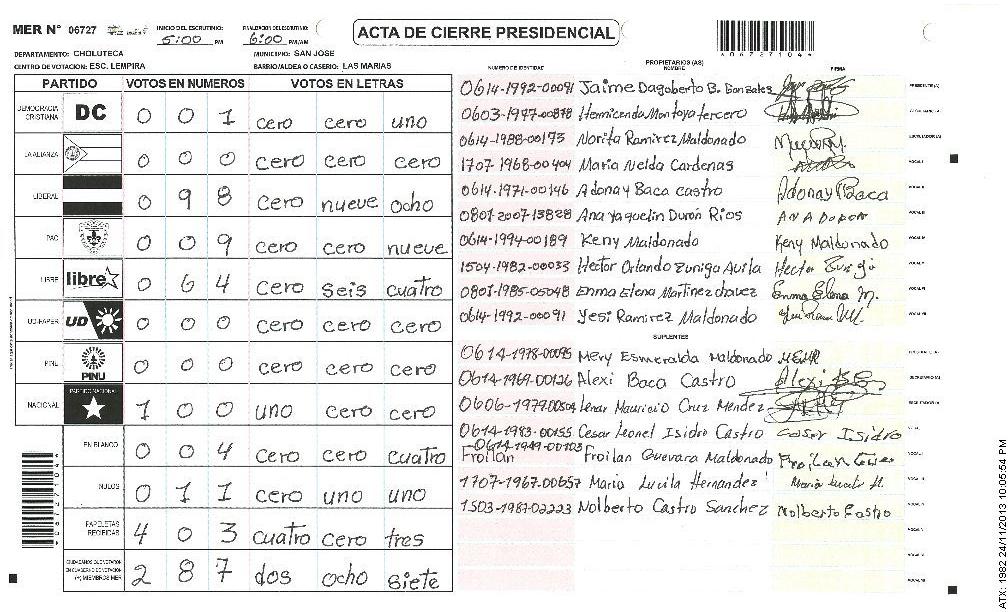 MER N° 06727 INICIO DEL ESCRUTINIO: 5:00 PM FINALIZACION DEL ESCRUTINIO: 6:00 PM/AM
ACTA DE CIERRE PRESIDENCIAL
4067271044
DEPARTAMENTO: CHOLUTECA MUNICIPIO: SAN JOSE
CENTRO DE VOTACION: ESC. LEMPIRA BARRIO/ALDEA O CASERIO: LAS MARIAS
PARTIDO VOTOS EN NUMEROS VOTOS EN LETRAS
DEMOCRACIA CRISTIANA DC 0 0 1 cero cero uno
LA ALIANZA 0 0 0 cero cero cero
LIBERAL 0 9 8 cero nueve ocho
PAC 0 0 9 cero cero nueve
LIBRE libre 0 6 4 cero seis cuatro
UD-FAPER UD 0 0 0 cero cero cero
PINU PINU 0 0 0 cero cero cero
NACIONAL PARTIDO NACIONAL 1 0 0 uno cero cero
EN BLANCO 0 0 4 cero cero cuatro
NULOS 0 1 1 cero uno uno
PAPELETAS RECIBIDAS 4 0 3 cuatro cero tres
CIUDADANOS QUE VOTARON EN CUADERNO DE VOTACION (+) MIEMBROS MER 2 8 7 dos ocho siete
PROPIETARIOS (AS)
NUMERO DE IDENTIDAD NOMBRE FIRMA
0614-1992-00091 Jaime Dagoberto B. Gonzales PRESIDENTE(A)
0603-1977-00878 Hermicenda Montoya tercero
0614-1988-00173 Norita Ramirez Maldonado ESCRUTADOR(A)
1707-1968-00404 Maria Nelda Cardenas VOCAL I
0614-1971-00146 Adonay Baca castro Adonay Baca VOCAL II
0801-2007-13828 Ana Yaquelin Durón Rios VOCAL III
0614-1994-00189 Keny Maldonado Keny Maldonado VOCAL IV
1504-1982-00033 Hector Orlando Zuniga Avila Hector VOCAL V
0801-1985-05048 Enma Elena Martinez chavez Enma Elena M. VOCAL VI
0614-1992-00091 Yesi Ramirez Maldonado VOCAL VII
SUPLENTES
0614-1978-00095 Mery Esmeralda Maldonado
0614-1969-00126 Alexi Baca Castro Alexi SECRETARIO(A)
0606-1979-00504 Lenar Mauricio Cruz Mendez ESCRUTADOR(A)
0614-1983-00155 Cesar Leonel Isidro Castro Isidro VOCAL I
0614-1949-00103
Froilan Froilan Guevara Maldonado Froilan VOCAL II
1707-1967-00657 Maria Lucila Hernandez VOCAL III
1503-1987-02223 Nolberto Castro Sanchez Nolberto Castro VOCAL IV
ATX: 1982 24/11/2013 10:05:54 PM